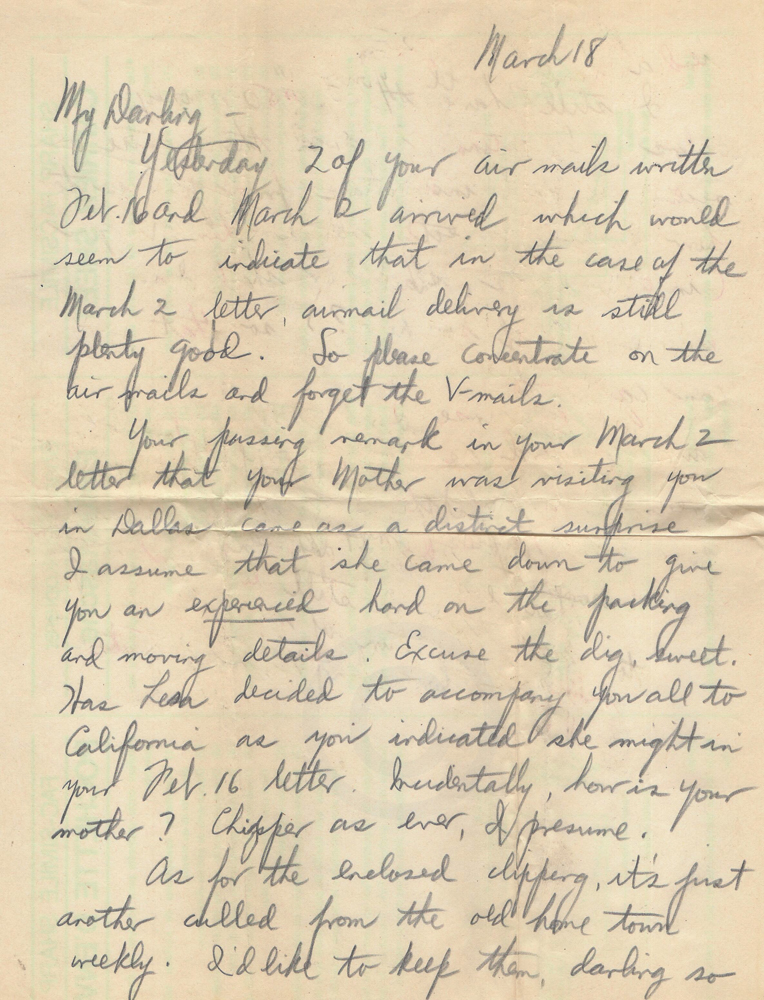 March 18
My Darling -
Yesterday 2 of your air mails written
Feb. 16 and March 2 arrived which would
seem to indicate that in the case of the
March 2 letter, airmail delivery is still
plenty good. So please concentrate on the
air mails and forget the V-mails.
Your passing remark in your March 2
letter that your Mother was visiting you
in Dallas came as a distinct surprise
I assume that she came down to give
you an experienced hand on the packing
and moving details. Excuse the dig, sweet.
Has Lena decided to accompany you all to
California as you indicated she might in
your Feb. 16 letter. Incidentally, how is your
mother? Chipper as ever, I presume.
As for the enclosed clipping, it's just
another culled from the old home town
weekly. I'd like to keep them, darling so